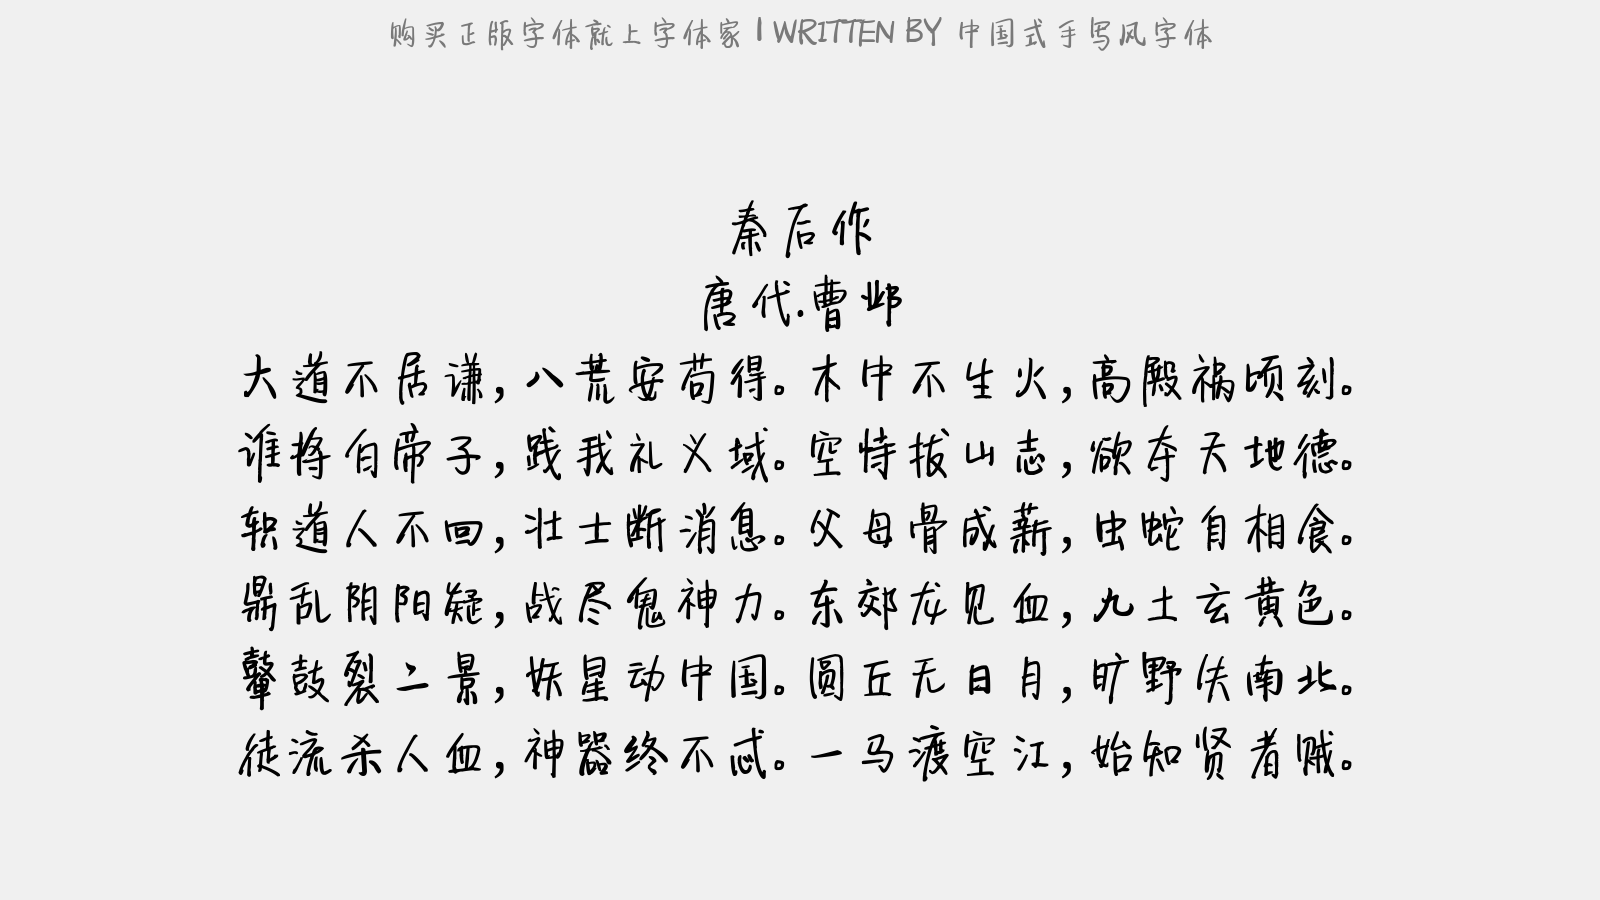 购买正版字体就上字体家 | WRITTEN BY 中国式手写风字体
秦后作
唐代.曹邺
大道不居谦,八荒安苟得。木中不生火,高殿祸顷刻。
谁将白帝子,践我礼义域。空恃拔山志,欲夺天地德。
轵道人不回,壮士断消息。父母骨成薪,虫蛇自相食。
鼎乱阴阳疑,战尽鬼神力。东郊龙见血,九土玄黄色。
鼙鼓裂二景,妖星动中国。圆丘无日月,旷野失南北。
徒流杀人血,神器终不忒。一马渡空江,始知贤者贼。